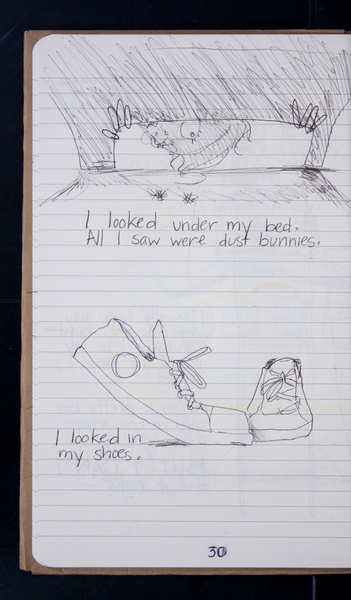 I looked under my bed.
All I saw were dust bunnies.
I looked in
my shoes.
30